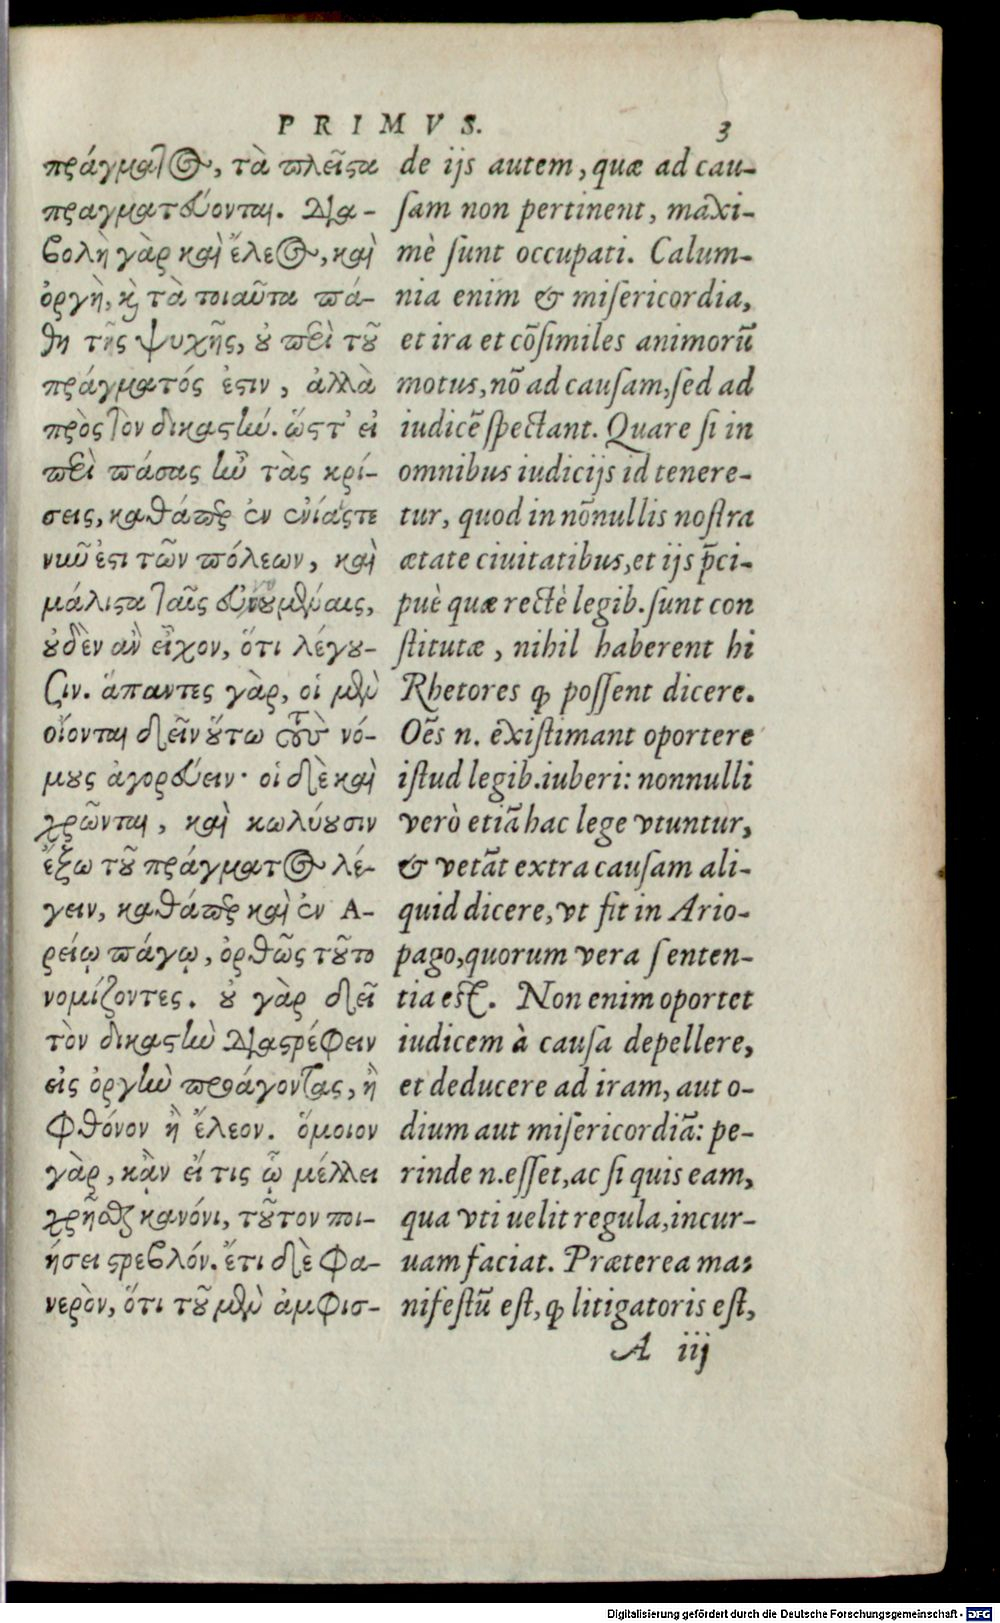 PRIMVS. 3
πράγματος, τὰ πλεῖςα
πραγματεύονται. Δια-
βολὴ γὰρ καὶ ἔλεος, καὶ
ὀργὴ, κ̀ τὰ τοιαῦτα πά-
θη τῆς ψυχῆς, ȣ̓ περὶ τȣ͂
πράγματός ἐςιν, ἀλλὰ
πρὸς τὸν δικαςὴν. ὥςτ' εἰ
περὶ πάσας ἦν τὰς κρί-
σεις, καθάπερ ἐν ἐνίαις τε
νιῦ ἐςι τῶν πόλεων, καὶ
μάλιςα ταῖς εὐνομȣμέναις,
ȣ̓δὲν ἂν εἶχον, ὅτι λέγȣ-
σιν. ἅπαντες γὰρ, οἱ μὲν
οἴονται δεῖν ȣ̔́τω τοὺς νό-
μȣς ἀγορεύειν· οἱ δὲ καὶ
χρῶνται, καὶ κωλύȣσιν
ἔξω τȣ͂ πράγματος λέ-
γειν, καθάπερ καὶ ἐν Α-
ρείῳ πάγῳ, ὀρθῶς τȣ͂το
νομίζοντες. ȣ̓ γὰρ δεῖ
τὸν δικαςὴν διαςρέφειν
εἰς ὀργὴν προάγοντας, ἢ
φθόνον ἢ ἔλεον. ὅμοιον
γὰρ, κᾂν εἴ τις ᾧ μέλλει
χρῆσθαι κανόνι, τȣ͂τον ποι-
ήσει ςρεβλόν. ἔτι δὲ φα-
νερὸν, ὅτι τȣ͂ μὲν ἀμφισ-
de ijs autem, quæ ad cau-
ſam non pertinent, maxi-
mè ſunt occupati. Calum-
nia enim & miſericordia,
et ira et cõſimiles animorũ
motus, nõ ad cauſam, ſed ad
iudicẽ ſpectant. Quare ſi in
omnibus iudicijs id tenere-
tur, quod in nõnullis noſtra
ætate ciuitatibus, et ijs p̃ci-
puè quæ rectè legib. ſunt con
ſtitutæ, nihil haberent hi
Rhetores ꝙ poſſent dicere.
Oẽs n. ẽxiſtimant oportere
iſtud legib. iuberi: nonnulli
verò etiã hac lege vtuntur,
& vetãt extra cauſam ali-
quid dicere, vt fit in Ario-
pago, quorum vera ſenten-
tia eſt. Non enim oportet
iudicem à cauſa depellere,
et deducere ad iram, aut o-
dium aut miſericordiã: pe-
rinde n. eſſet, ac ſi quis eam,
qua vti uelit regula, incur-
uam faciat. Præterea ma-
nifeſtũ eſt, ꝙ litigatoris eſt,
A iij
Digitalisierung gefördert durch die Deutsche Forschungsgemeinschaft - DFG